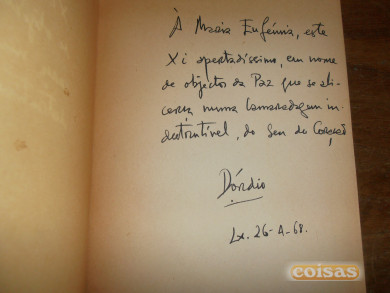 À Maria Eufémia, este
Xi apertadíssimo, em nome
de objectos da Paz que se ali-
cerça numa Camaradagem in-
destrutível, do seu do Coração
Dórdio
Lx. 26-A-68.
coisas